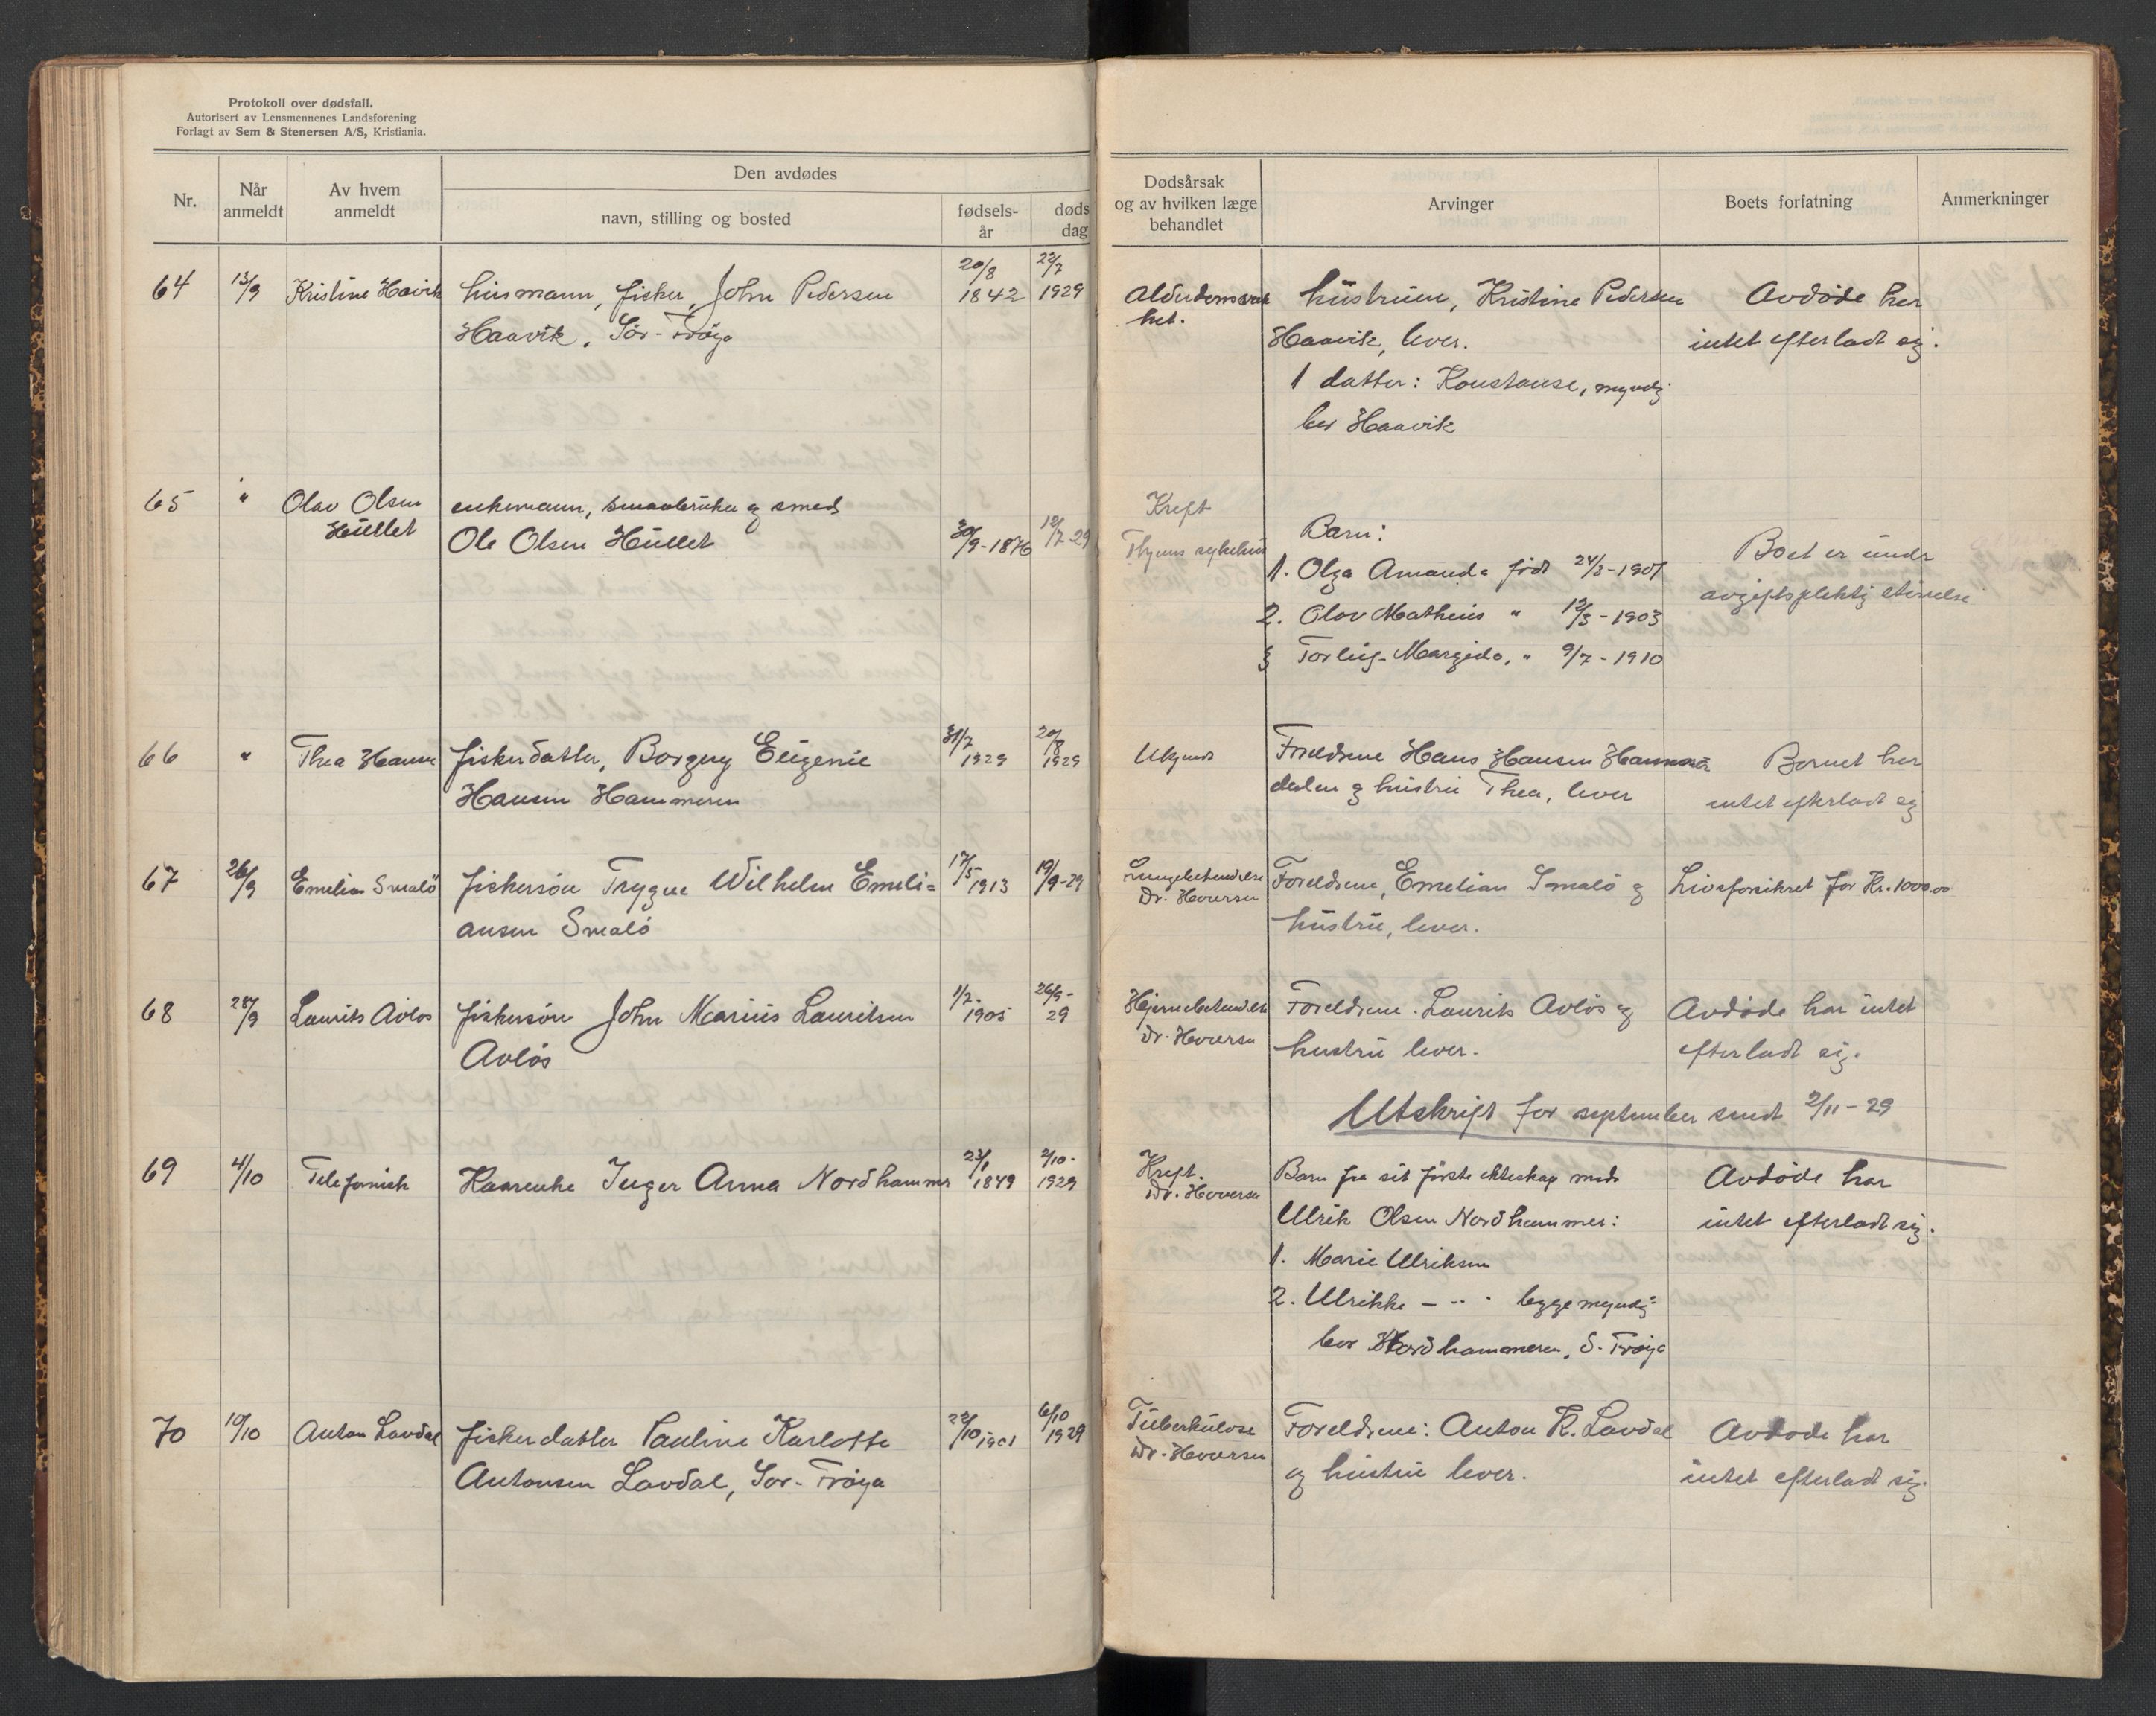 Protokoll over dødsfall.
Autorisert av Lensmennenes Landsforening
Forlagt av Sem & Stenersen A/S, Kristiania.
Nr.
Når anmeldt
Av hvem anmeldt
Den avdødes
navn, stilling og bosted
fødsels-år
døds dag
Dødsårsak og av hvilken læge behandlet
Arvinger
Boets forfatning
Anmerkninger
64 13/9 Kristine Haavik husmann, fisker, John Pedersen 20/8 1842 22/7 1929
Haavik, Sør-Frøya
Alderdomsvak het. hustruen, Kristine Pedersen Avdøde har
Haavik, lever. intet efterladt sig.
1 datter: Konstanse, myndig
bor Haavik
65 " Olav Olsen Hullet enkemann, smaabruker og smed
Ole Olsen Hullet 30/9-1876 12/7-29
Kreft sykehus
Barn:
1. Olga Amanda født 24/3-1901
2. Olav Matheus " 12/3-1903
3 Margido, " 9/7-1910
Boet er under
avgiftspliktig
66 " Thea Hansen fiskerdatter, Borgny Eugenie 31/7 1929 20/8 1929
Hansen Hammeren
Ukjend Foreldrene Hans Hansen Barnet har
dalen og hustru Thea, lever intet efterladt sig
67 26/9 Emelian Smalø fiskersøn Trygve Wilhelm Emeli= 17/5 1913 19/9-29
ansen Smalø
Lungebetendelse Foreldrene, Emelian Smalø og Livsforsikret for Kr. 1000.00
Dr. hustru, lever.
68 28/9 Laurits Avløs fiskersøn John Marius Lauritsen 1/2- 1905 26/9- 29
Avløs
Hjernebetendelse Foreldrene. Laurits Avløs og Avdøde har intet
Dr. hustru lever. efterladt sig.
Utskrift for september sendt 2/11-29
69 4/10 Telefonisk Inger Anna Nordhammer 23/1 1849 2/10- 1929
Kreft. Barn fra sit første ekteskap med Avdøde har
Dr. Ulrik Olsen Nordhammer: intet efterladt sig.
1. Marie Ulriksen
2. Ulrikke - " - begge myndig=
bor Nordhammeren, S-Frøya
70 10/10 Anton Lavdal fiskerdatter Pauline Karlotte 22/10 1901 6/10 1929
Antonsen Lavdal, Sør-Frøya
Tuberkulose Foreldrene: Anton K. Lavdal Avdøde har
Dr. og hustru lever. intet efterladt sig.